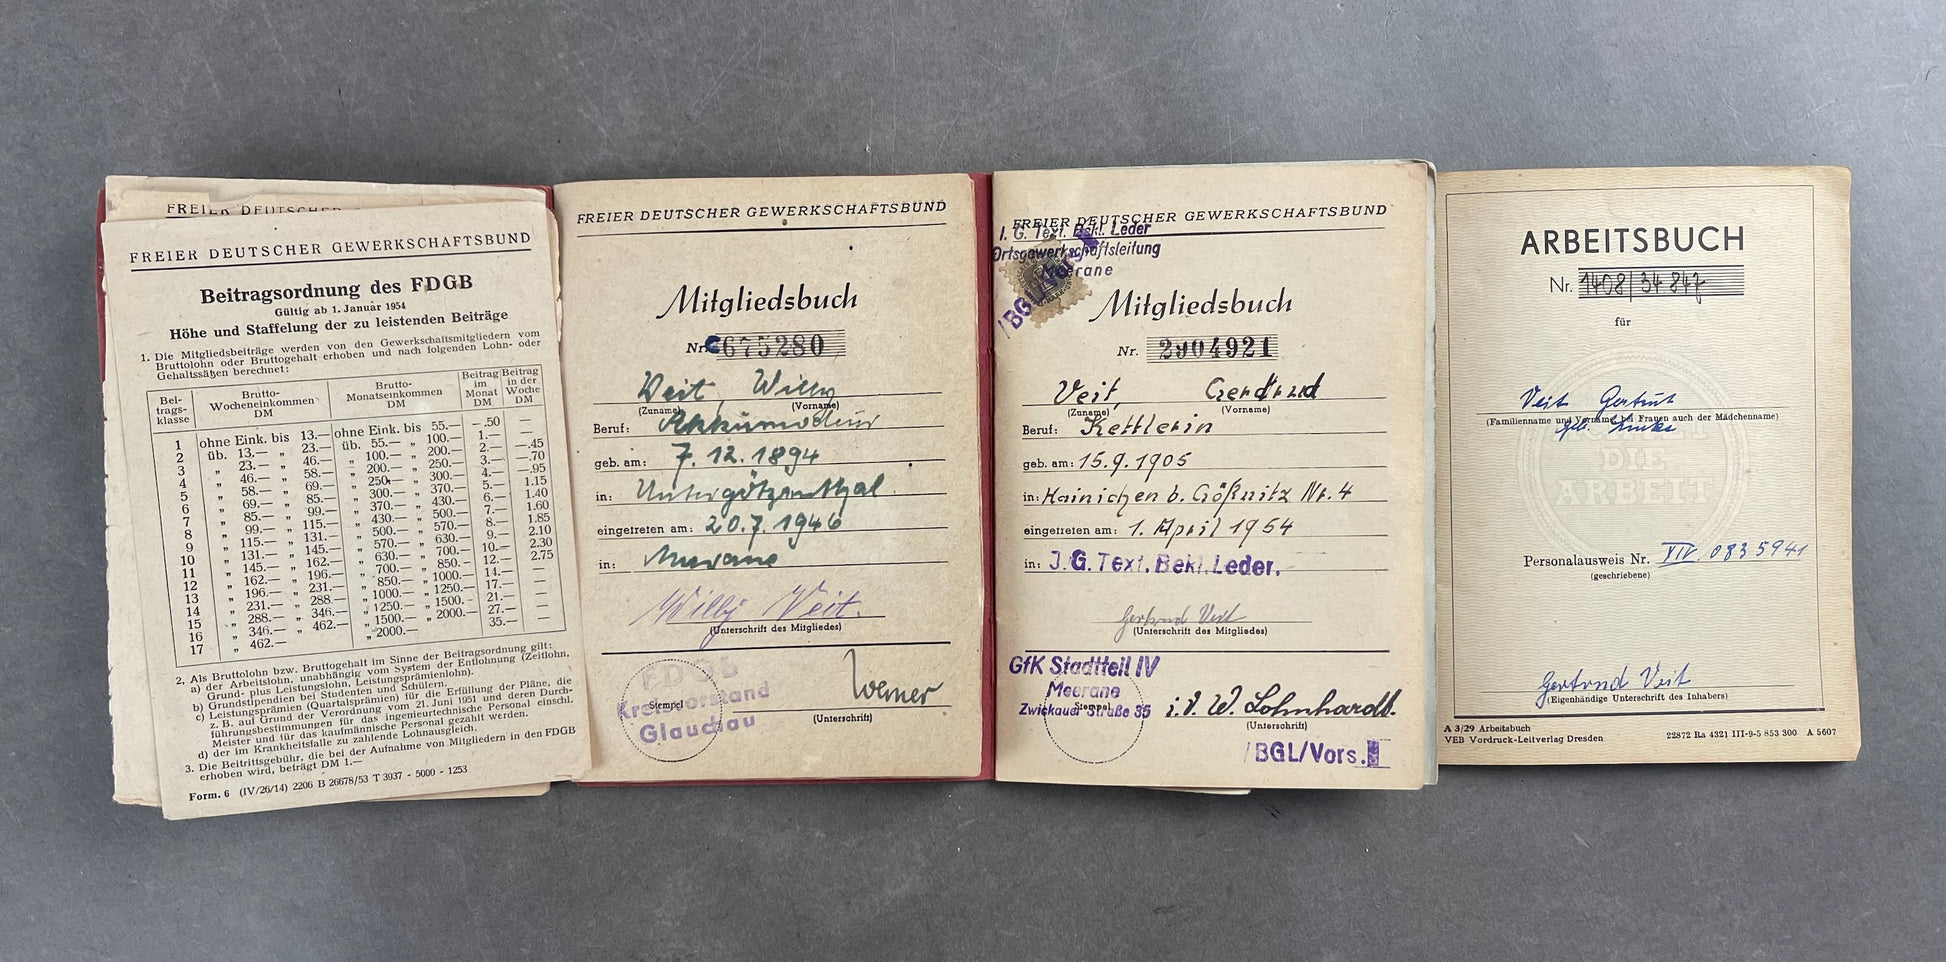 FREIER DEUTSCHER
FREIER DEUTSCHER GEWERKSCHAFTSBUND
Beitragsordnung des FDGB
Gültig ab 1. Januar 1954
Höhe und Staffelung der zu leistenden Beiträge
1. Die Mitgliedsbeiträge werden von den Gewerkschaftsmitgliedern vom
Bruttolohn oder Bruttogehalt erhoben und nach folgenden Lohn- oder
Gehaltssätzen berechnet:
Bei-
trags-
klasse
Brutto-
Wocheneinkommen
DM
Brutto-
Monatseinkommen
DM
Beitrag
im
Monat
DM
Beitrag
in der
Woche
DM
1 ohne Eink. bis 13.— ohne Eink. bis 55.— —.50 —
2 üb. 13.— „ 23.— üb. 55.— „ 100.— 1.— —
3 „ 23.— „ 46.— „ 100.— „ 200.— 2.— —.45
4 „ 46.— „ 58.— „ 200.— „ 250.— 3.— —.70
5 „ 58.— „ 69.— „ 250.— „ 300.— 4.— —.95
6 „ 69.— „ 85.— „ 300.— „ 370.— 5.— 1.15
7 „ 85.— „ 99.— „ 370.— „ 430.— 6.— 1.40
8 „ 99.— „ 115.— „ 430.— „ 500.— 7.— 1.60
9 „ 115.— „ 131.— „ 500.— „ 570.— 8.— 1.85
10 „ 131.— „ 145.— „ 570.— „ 630.— 9.— 2.10
11 „ 145.— „ 162.— „ 630.— „ 700.— 10.— 2.30
12 „ 162.— „ 196.— „ 700.— „ 850.— 12.— 2.75
13 „ 196.— „ 231.— „ 850.— „ 1000.— 14.— —
14 „ 231.— „ 288.— „ 1000.— „ 1250.— 17.— —
15 „ 288.— „ 346.— „ 1250.— „ 1500.— 21.— —
16 „ 346.— „ 462.— „ 1500.— „ 2000.— 27.— —
17 „ 462.— „ 2000.— 35.— —
2. Als Bruttolohn bzw. Bruttogehalt im Sinne der Beitragsordnung gilt:
a) der Arbeitslohn, unabhängig vom System der Entlohnung (Zeitlohn,
Grund- plus Leistungslohn, Leistungsprämienlohn).
b) Grundstipendien bei Studenten und Schülern.
c) Leistungsprämien (Quartalsprämien) für die Erfüllung der Pläne, die
z. B. auf Grund der Verordnung vom 21. Juni 1951 und deren Durch-
führungsbestimmungen für das ingenieurtechnische Personal einschl.
Meister und für das kaufmännische Personal gezahlt werden.
d) der im Krankheitsfalle zu zahlende Lohnausgleich.
3. Die Beitrittsgebühr, die bei der Aufnahme von Mitgliedern in den FDGB
erhoben wird, beträgt DM 1.—
Form. 6 (IV/26/14) 2206 B 26678/53 T 3937 - 5000 - 1253
FREIER DEUTSCHER GEWERKSCHAFTSBUND
Mitgliedsbuch
Nr. 675280
Veit, Willy
(Zuname) (Vorname)
Beruf:
geb. am: 7.12.1894
in: Untergötzenthal
eingetreten am: 20.7.1946
in: Meerane
Willy Veit.
(Unterschrift des Mitgliedes)
FDGB
Kreisvorstand
Glauchau
Stempel
Werner
(Unterschrift)
FREIER DEUTSCHER GEWERKSCHAFTSBUND
I. G. Text. Bekl. Leder
Ortsgewerkschaftsleitung
Meerane
/BGL/Vors.
Mitgliedsbuch
Nr. 2904921
Veit, Gerdrud
(Zuname) (Vorname)
Beruf: Kettlerin
geb. am: 15.9.1905
in: Hainichen b. Gößnitz Nr. 4
eingetreten am: 1. April 1954
in: J.G. Text. Bekl. Leder.
Gertrud Veit
(Unterschrift des Mitgliedes)
GfK Stadtteil IV
Meerane
Zwickauer Straße 35
Stempel
i.V. W. Lohnhardt.
(Unterschrift)
/BGL/Vors.
ARBEITSBUCH
Nr. 1408/34 847
für
Veit Gertrut
(Familienname und Vorname, bei Frauen auch der Mädchenname)
geb.
DIE
ARBEIT
Personalausweis Nr. XIV 0835941
(geschriebene)
Gertrud Veit
(Eigenhändige Unterschrift des Inhabers)
A 3/29 Arbeitsbuch
VEB Vordruck-Leitverlag Dresden 22872 Ra 4321 III-9-5 853 300 A 5607